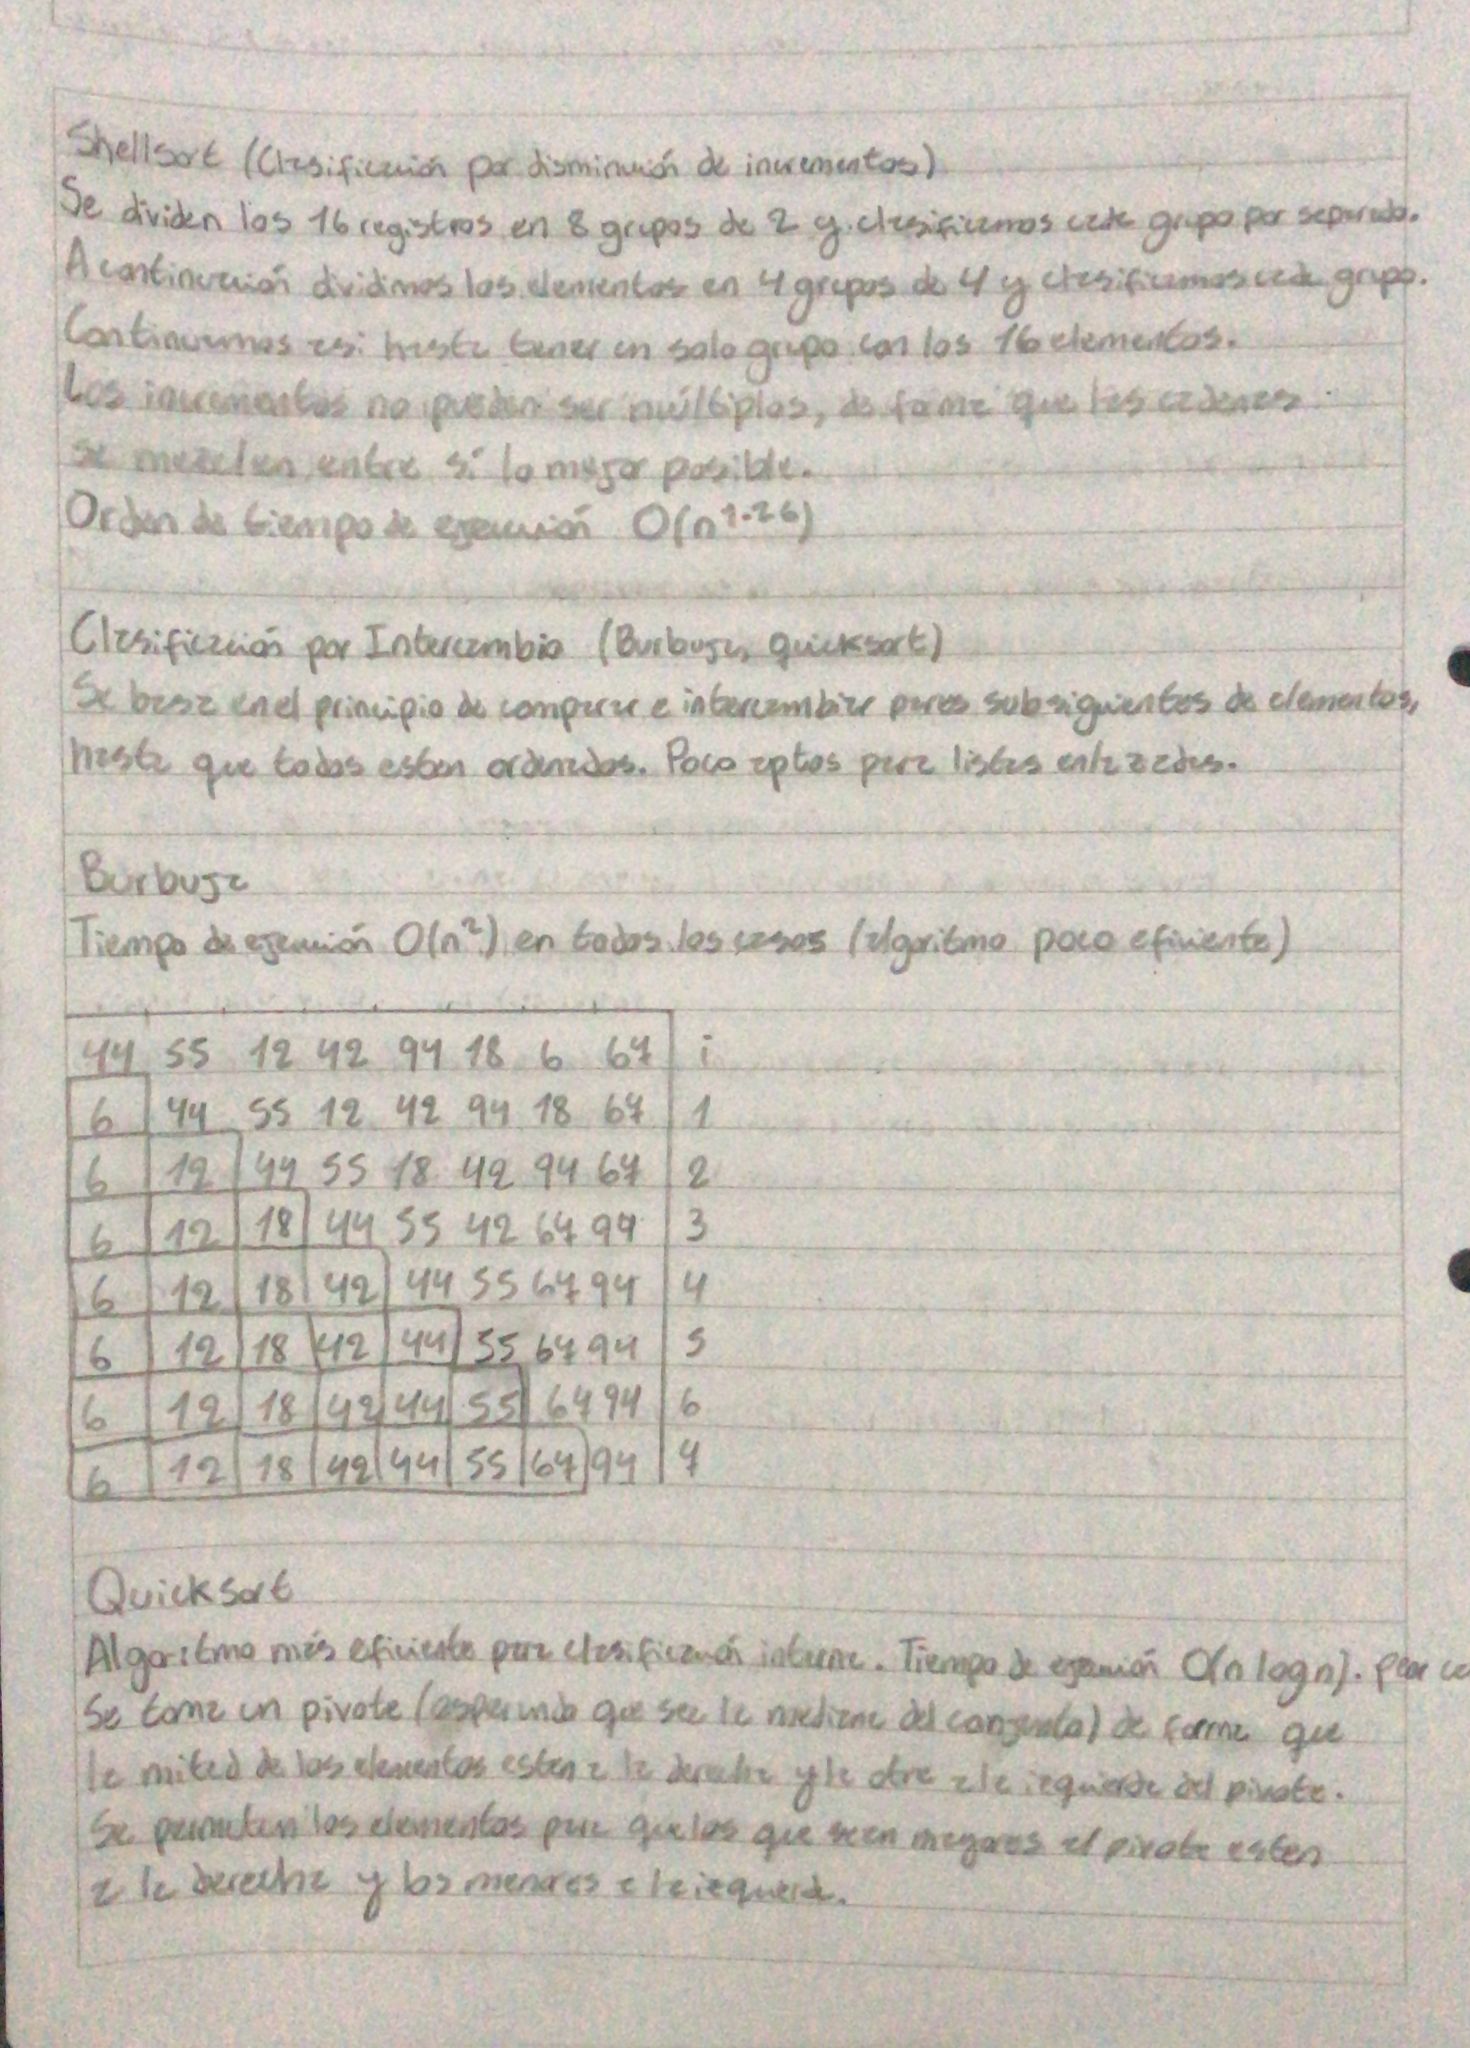 Shellsort (Clasificación por disminución de incrementos)
Se dividen los 16 registros en 8 grupos de 2 y clasificamos cada grupo por separado.
A continuación dividimos los elementos en 4 grupos de 4 y clasificamos cada grupo.
Continuamos así hasta tener un solo grupo con los 16 elementos.
Los incrementos no pueden ser múltiplos, de forma que las cadenas
se mezclen entre sí lo mejor posible.
Orden de tiempo de ejecución O(n^1.26)
Clasificación por Intercambio (Burbuja, Quicksort)
Se basa en el principio de comparar e intercambiar pares subsiguientes de elementos,
hasta que todos esten ordenados. Poco aptos para listas enlazadas.
Burbuja
Tiempo de ejecución O(n²) en todos los casos (algoritmo poco eficiente)
44 55 12 42 94 18 6 67 i
6 44 55 12 42 94 18 67 1
6 12 44 55 18 42 94 67 2
6 12 18 44 55 42 67 94 3
6 12 18 42 44 55 67 94 4
6 12 18 42 44 55 67 94 5
6 12 18 42 44 55 67 94 6
6 12 18 42 44 55 67 94 7
Quicksort
Algoritmo más eficiente para clasificación interna. Tiempo de ejecución O(n log n). Peor
Se toma un pivote (esperando que sea la mediana del conjunto) de forma que
la mitad de los elementos esten a la derecha y la otra a la izquierda del pivote.
Se permutan los elementos para que los que sean mayores al pivote esten
a la derecha y los menores a la izquierda.